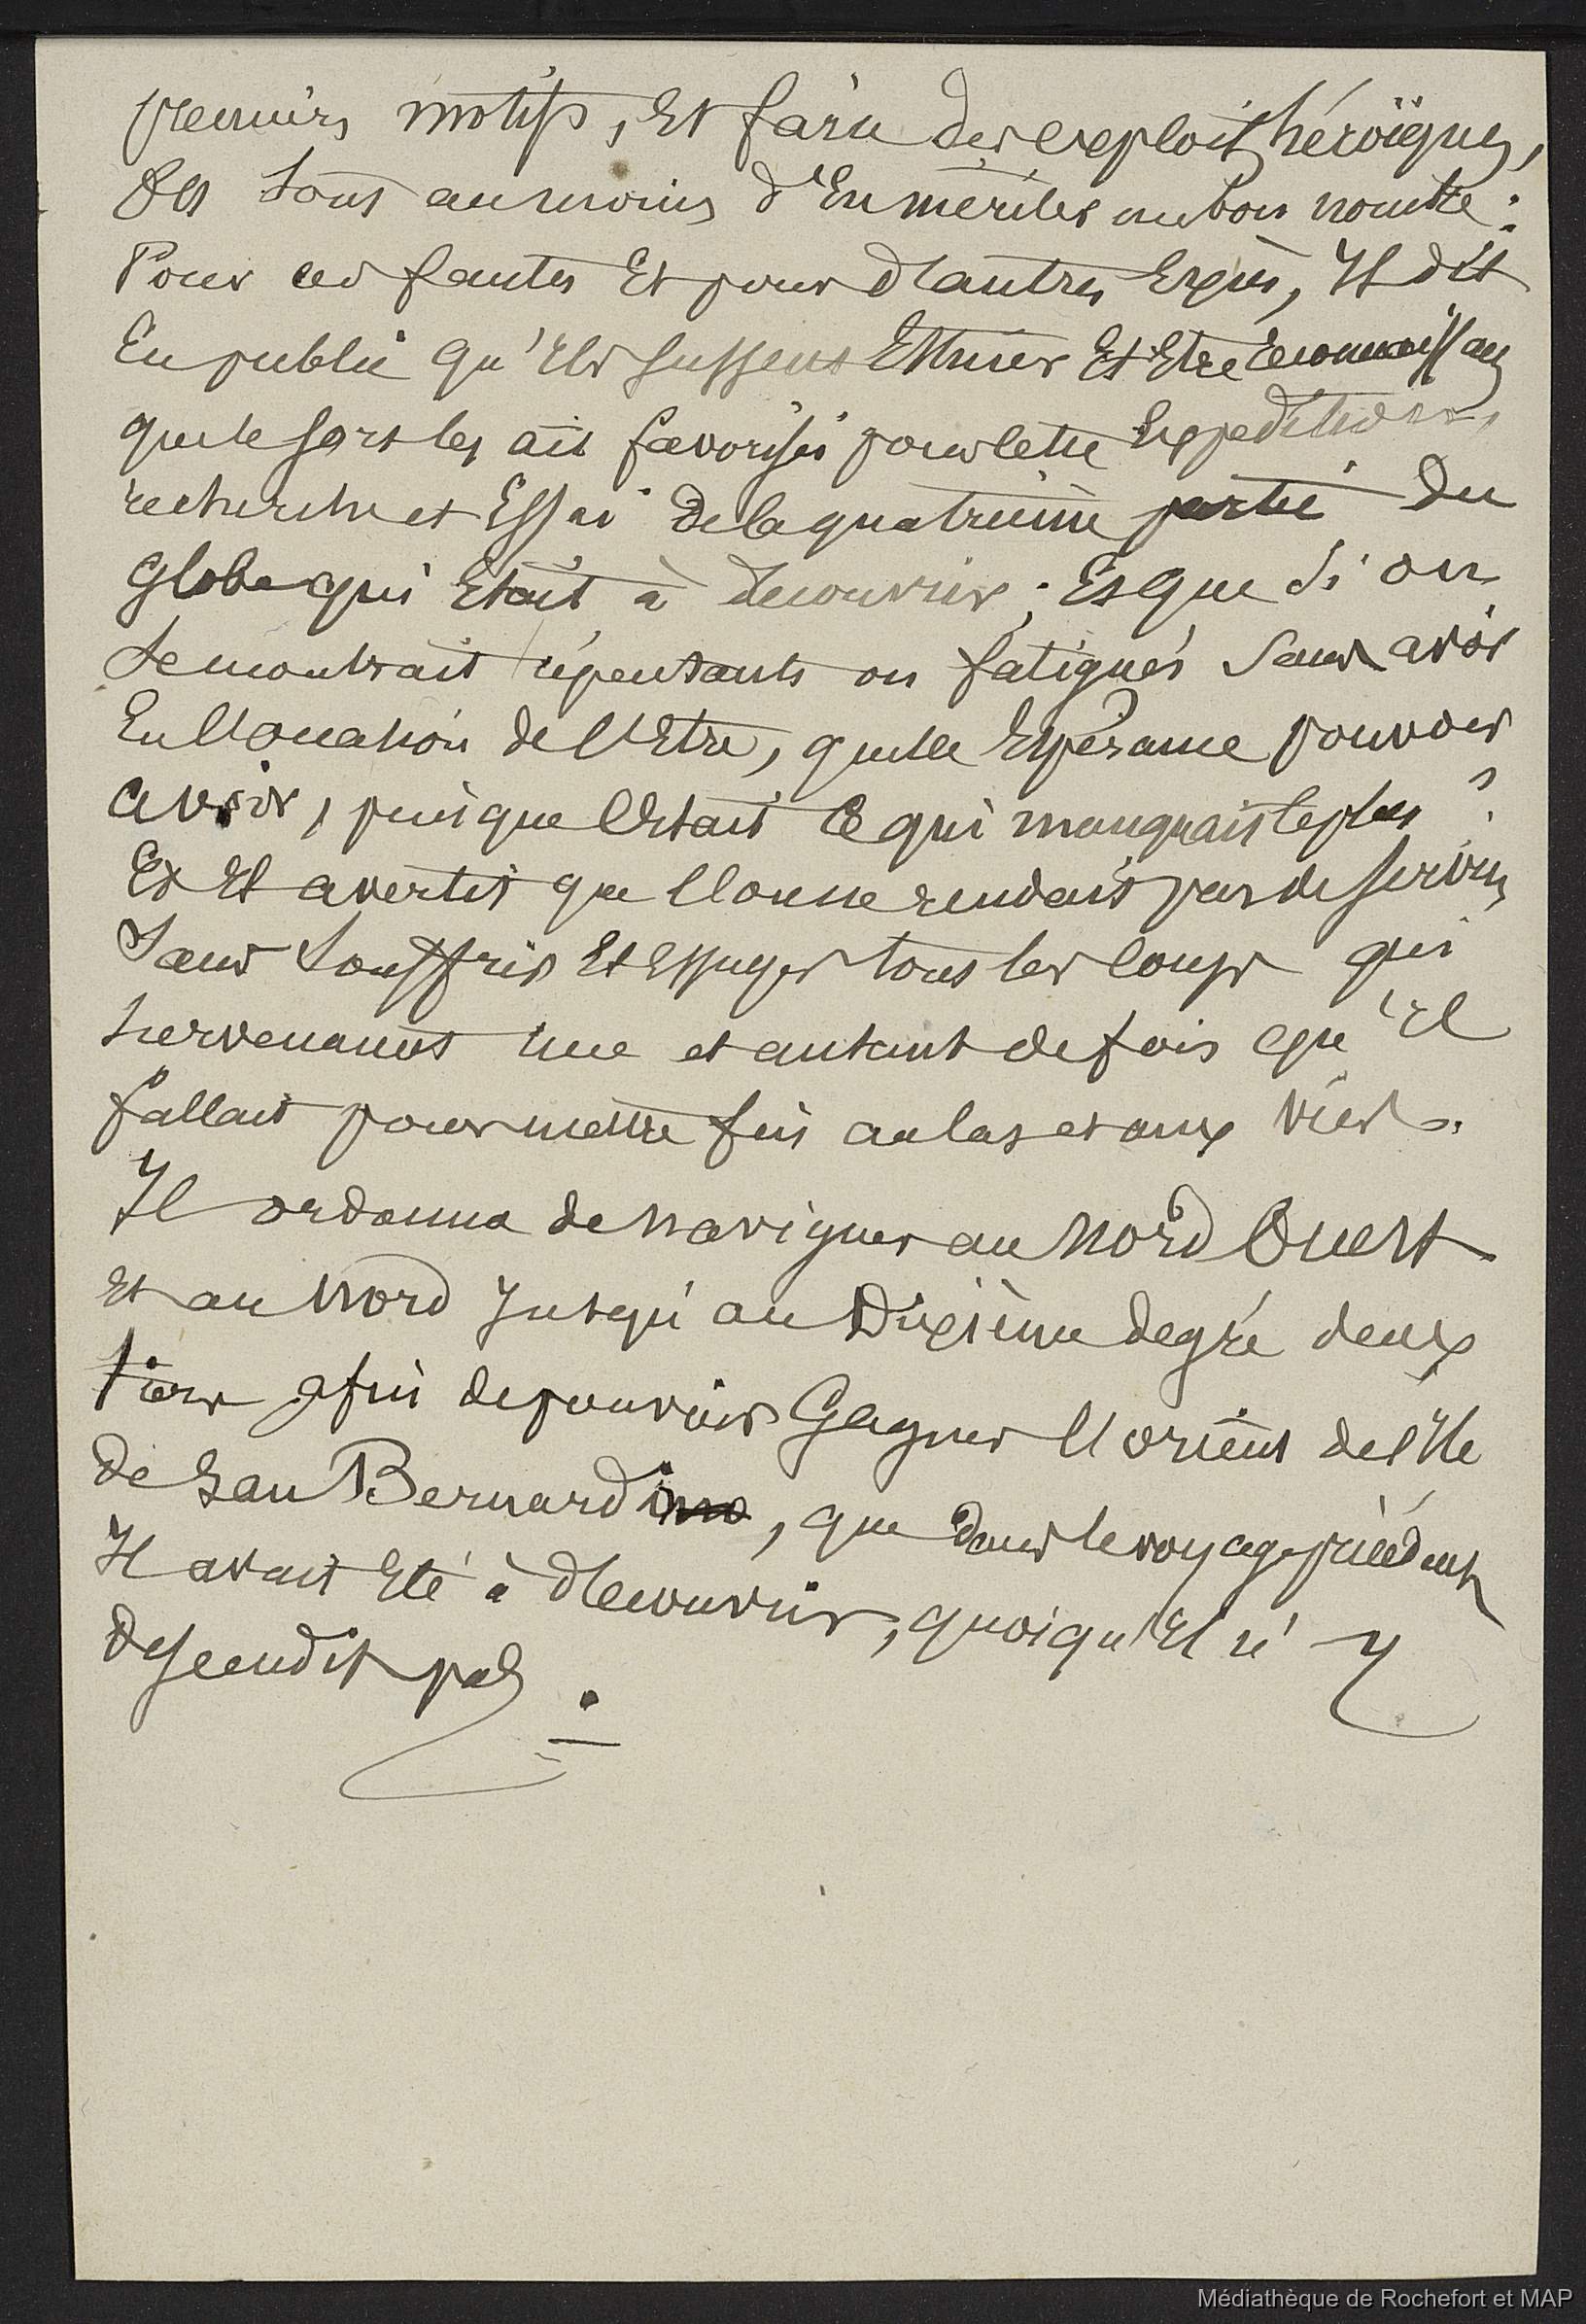 premiers motifs, Et faire des exploits héroïques,
Et sont au moins d'En mériter un bon nombre :
Pour ces fautes Et pour d'autres Excès, Il dit
En public qu'Ils sussent Estimer Et Etre reconnaissans
que le sort les ait favorisés pour cette Expédition,
recherche et Essai de la quatrième partie du
Globe qui Etait à découvrir ; Et que si on
se montrait répentants ou fatigués sans avoir
En l'occation de l'Etre, quelle Espérance pouvoir
avoir, puisque c'Etait ce qui manquait le plus ?
Et Il avertit que l'on ne rendait pas de services
sans souffrir Et Essuyer tous les coups qui
surviennent une et autant de fois qu'Il
fallait pour mettre fin au las et aux
Il ordonna de naviguer au Nord Ouest
Et au Nord Jusqu'au Dixième degré deux
tiers afin de pouvoir Gagner l'orient de l'Ile
de San Bernardino, que dans le voyage précédent
Il avait Eté à découvrir, quoiqu'Il n'y
descendit pas.
Médiathèque de Rochefort et MAP